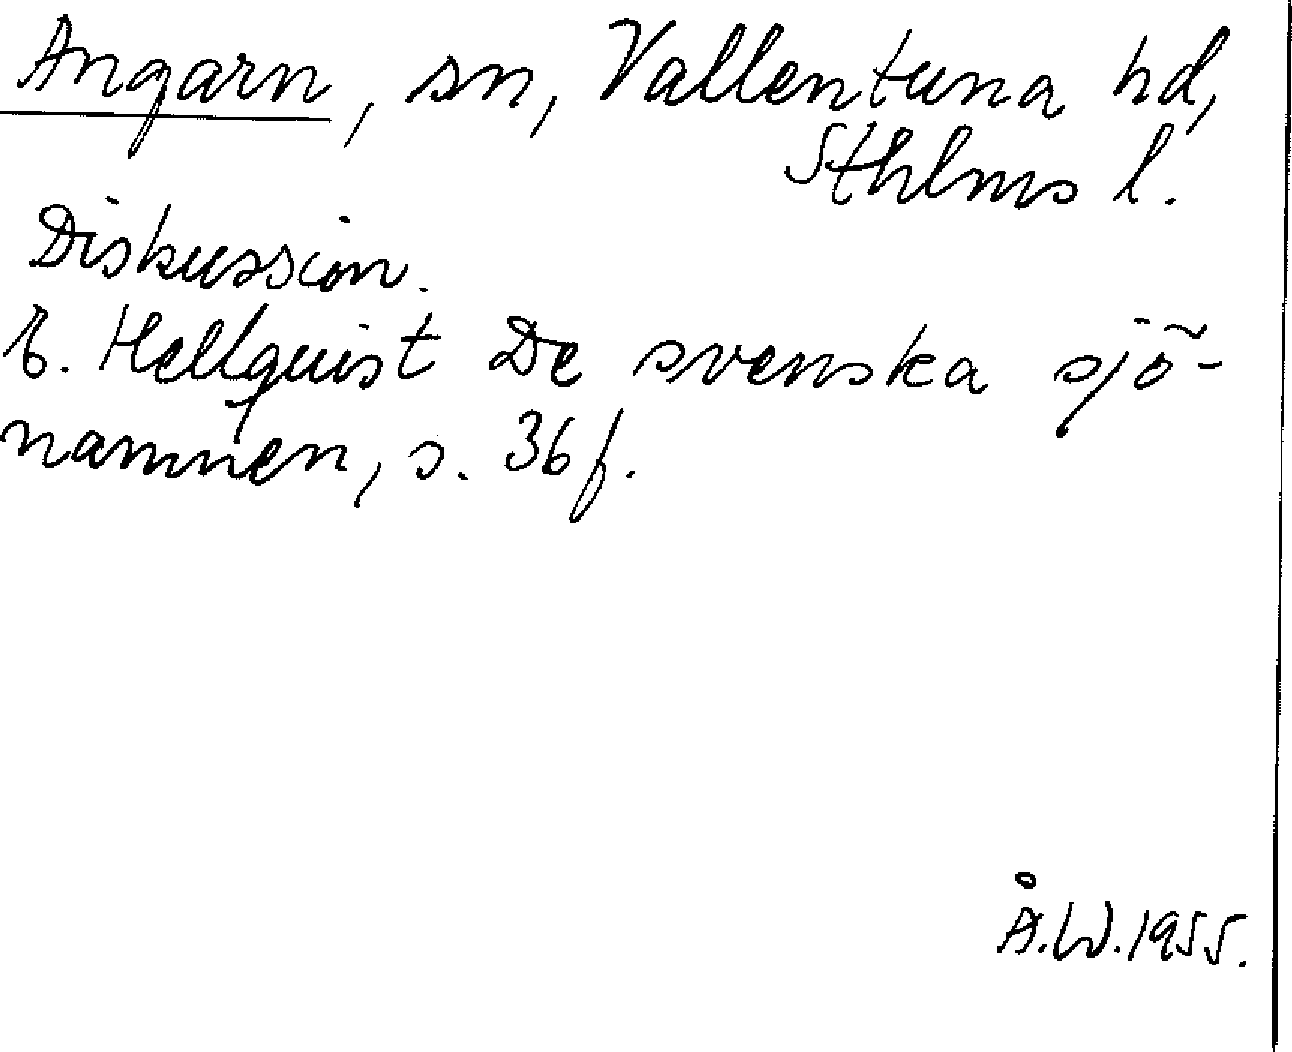 Angarn, sn, Vallentuna hd,
Sthlms l.
Diskussion.
E. Hellquist De svenska sjö-
namnen, s. 36 f.
Å.W. 1955.